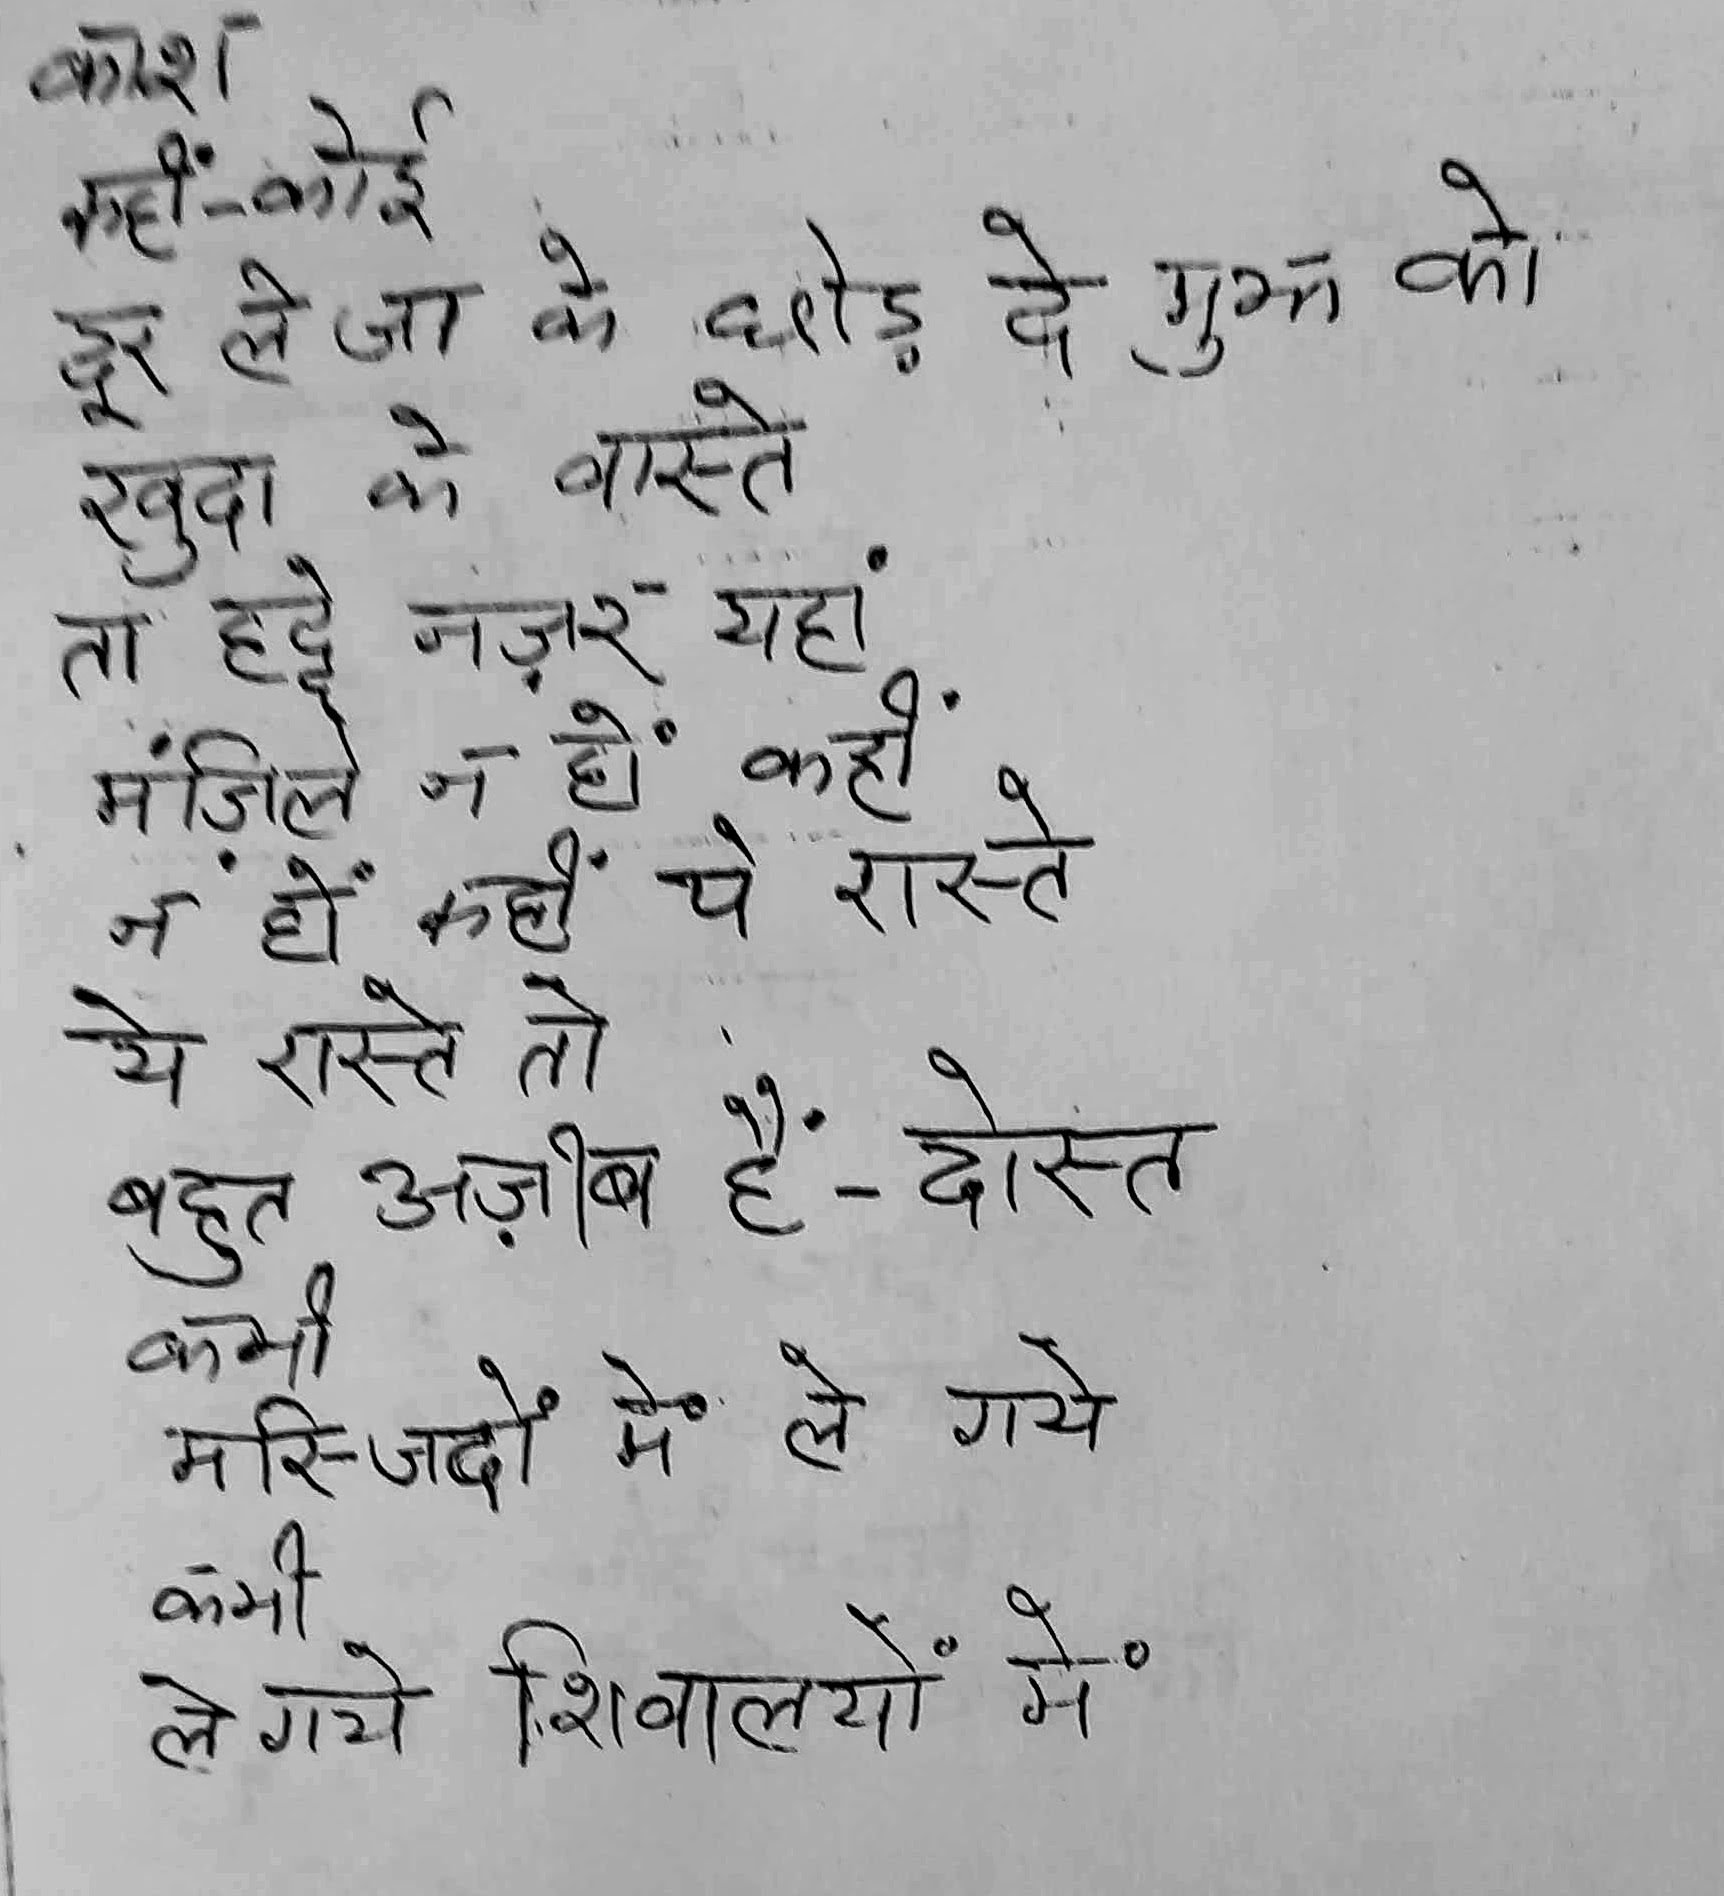 काश
कहीं-कोई
दूर ले जा के छोड़ दे मुझ को
खुदा के वास्ते
ता हद्दे नज़र यहां
मंज़िलें न हों कहीं
न हों कहीं ये रास्ते
ये रास्ते तो
बहुत अज़ीब हैं - दोस्त
कभी
मस्जिदों में ले गये
कभी
ले गये शिवालयों में